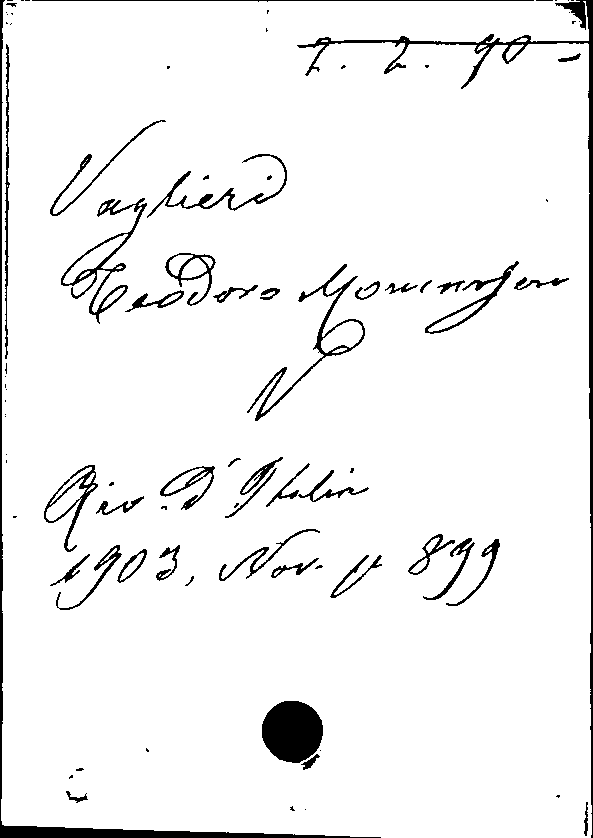 7. 2. 90 -
Vaglieri
Teodoro Mommsen
N
Riv. d'Italia
1903, Nov. p 899